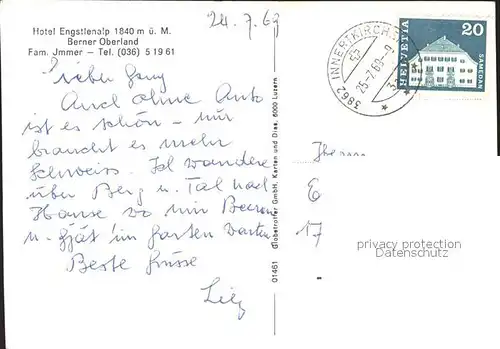 24.7.69
Hotel Engstlenalp 1840 m ü. M.
Berner Oberland
Fam. Jmmer - Tel. (036) 5 19 61
Lieber
Auch ohne Auto
ist es schön - nur
braucht es mehr
Schweiss. Ich wandere
über Berg u. Tal nach
Hause wo mir Beeren
u. Gjät im Garten warten
Beste Grüsse
01461 Globetrotter GmbH, Karten und Dias, 6000 Luzern
3862 INNERTKIRCHEN
25-7.69-9
HELVETIA
20
SAMEDAN
Herrn
E
17
privacy protection
Datenschutz